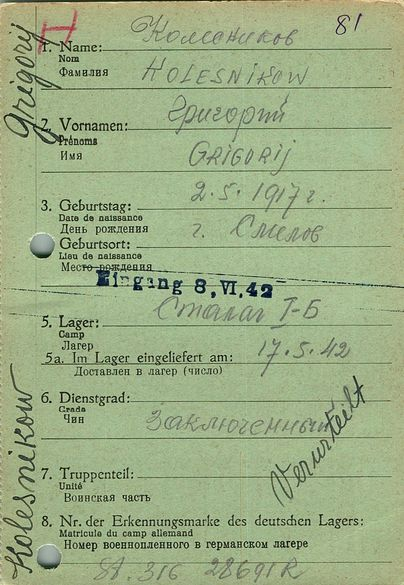 Grigorij
Kolesnikow
H
81
1. Name: Колесников
Nom
Фамилия KOLESNIKOW
2. Vornamen: Григорий
Prénoms
Имя GRIGORIJ
3. Geburtstag: 2.5.1917 г.
Date de naissance
День рождения
Geburtsort: г. Смилов
Lieu de naissance
Место рождения
Eingang 8, VI. 42
5. Lager: Сталаг I-Б
Camp
Лагерь
5a. Im Lager eingeliefert am: 17.5.42
Доставлен в лагер (число)
6. Dienstgrad:
Grade
Чин Заключенный
Verurteilt
7. Truppenteil:
Unité
Воинская часть
8. Nr. der Erkennungsmarke des deutschen Lagers:
Matricule du camp allemand
Номер военнопленного в германском лагере
St. 316 28691R